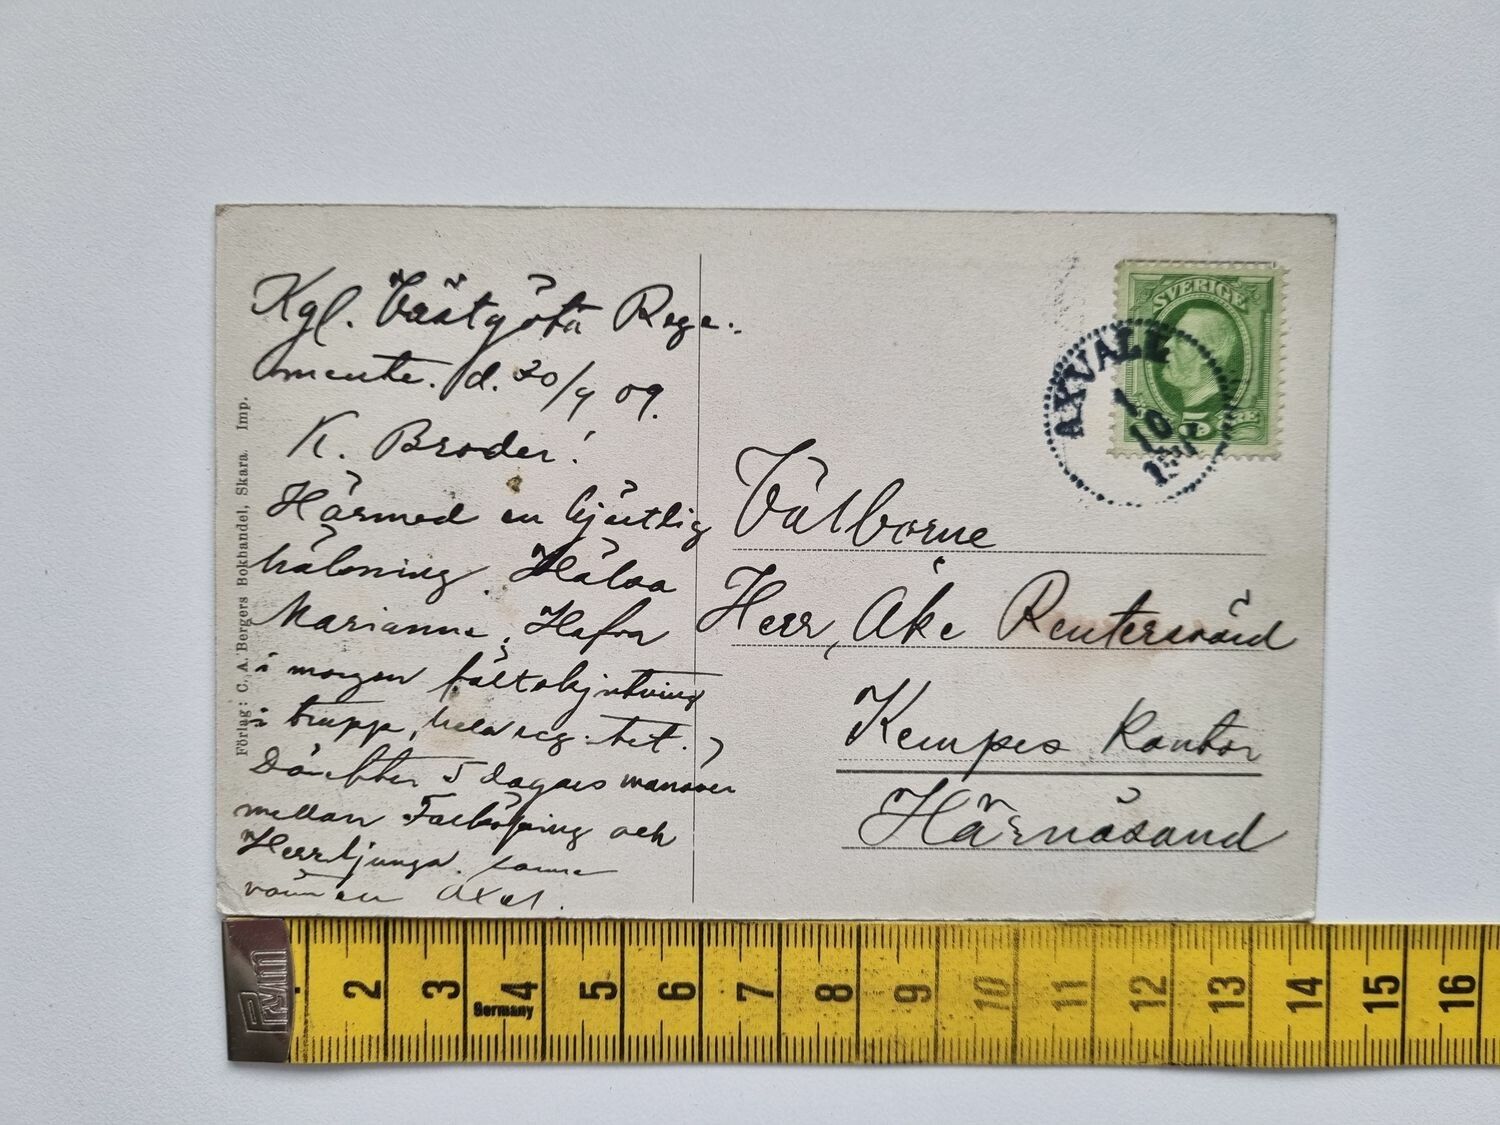 Kgl. Västgöta Rege-
mente. d. 30/9 09.
K. Broder!
Härmed en hjärtlig
hälsning. Hälsa
Marianne. Hafva
i morgon fältskjutning
i trupp, hela reg:tet.
Därefter 5 dagars manöver
mellan Falköping och
Herrljunga.
vännen Axel.
Förlag: C. A. Bergers Bokhandel, Skara. Imp.
SVERIGE
5
AXVALL
1
10
Välborne
Herr, Åke Reuterswärd
Kempes Kontor
Härnösand
PRYM
Germany
2 3 4 5 6 7 8 9 10 11 12 13 14 15 16